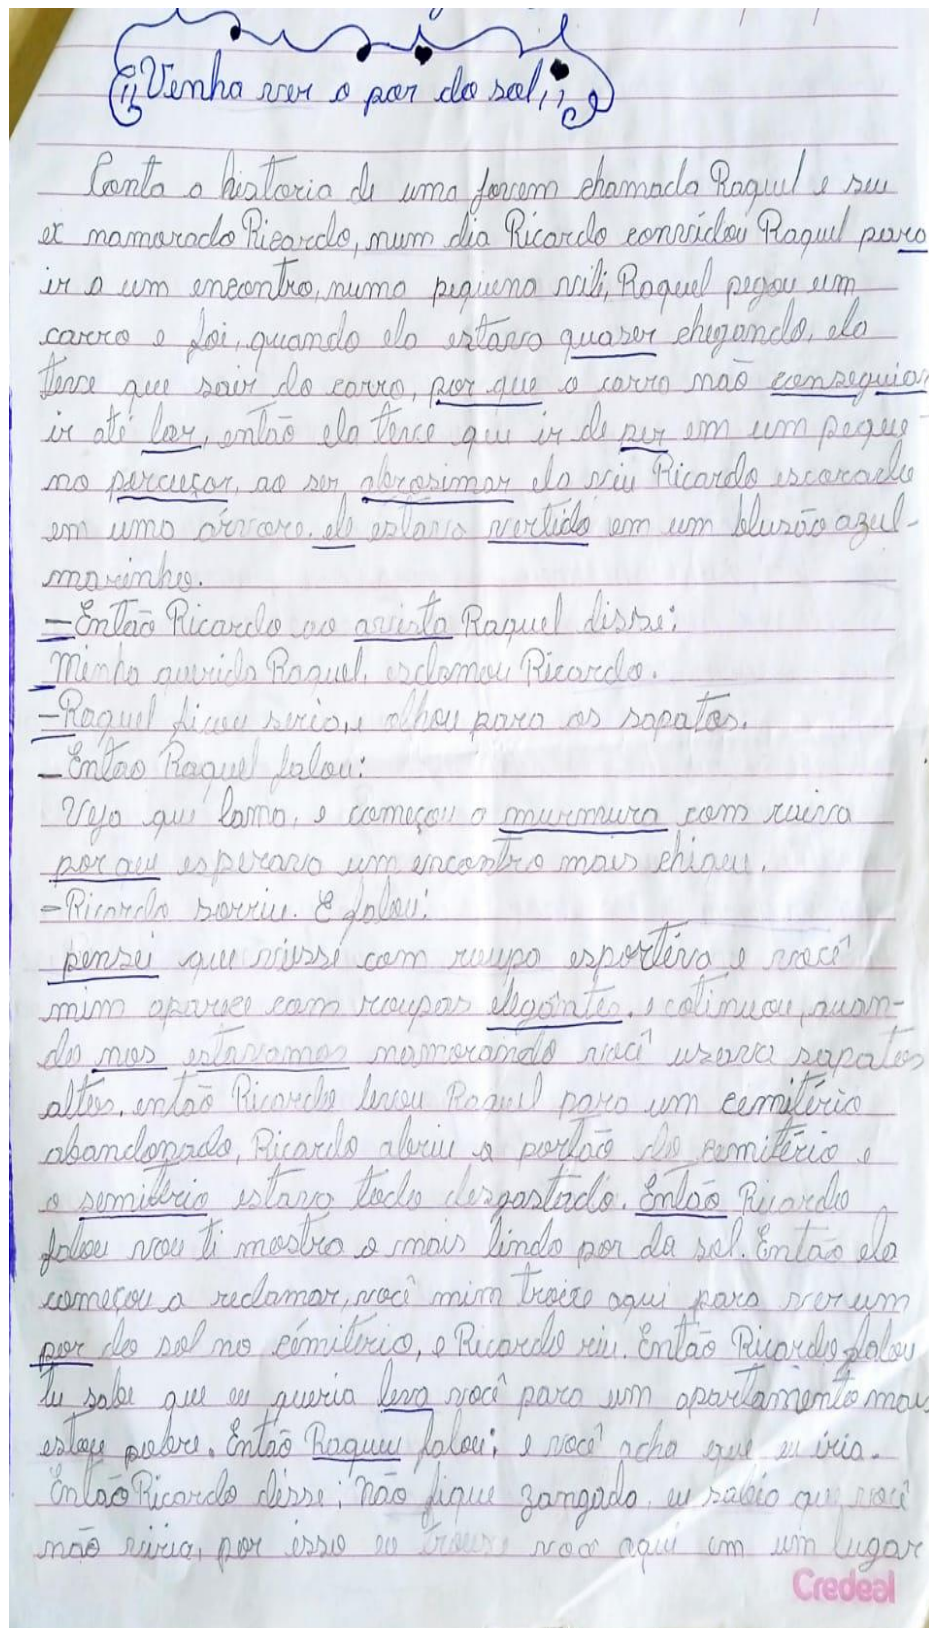 "Venha ver o por do sol,,
Conta a historia de uma jorcem chamada Raquel e seu
ex namorado Ricardo, num dia Ricardo convidou Raquel para
ir a um encontro, numa pequena vili, Raquel pegou um
carro e foi, quando ela estava quaser chegando, ela
teve que sair do carro, por que o carro não conseguiar
ir até lar, então ela teve que ir de per em um peque-
no percuçor, ao ser abrosimar ela viu Ricardo escorado
em uma árvore. ele estava vertido em um blusão azul-
marinho.
-Então Ricardo ao avista Raquel disse:
Minha querida Raquel, esclamou Ricardo.
-Raquel ficou seria, e olhou para os sapatos.
-Então Raquel falou:
Veja que lama, e começou a murmura com raiva
porque esperava um encontro mais chique.
-Ricardo sorriu. E falou:
pensei que viesse com roupa esportiva e você
mim aparece com roupas elegântes. e cotinuou, quan-
do nos estavamos namorando você usava sapatos
altos. então Ricardo levou Raquel para um cemitério
abandonado, Ricardo abriu o portão do cemitério e
o semitério estava todo desgastado. Então Ricardo
falou vou ti mostra o mais lindo por da sol. Então ela
começou a reclamar, você mim troixe aqui para ver um
por do sol no cémitério, e Ricardo riu. Então Ricardo falou
tu sabe que eu queria leva você para um apartamento mais
estou pobre. Então Raqueu falou; e você acha que eu iria.
Então Ricardo disse; não fique zangada, eu sabia que você
não viria, por isso eu trouxe você aqui em um lugar
Credeal